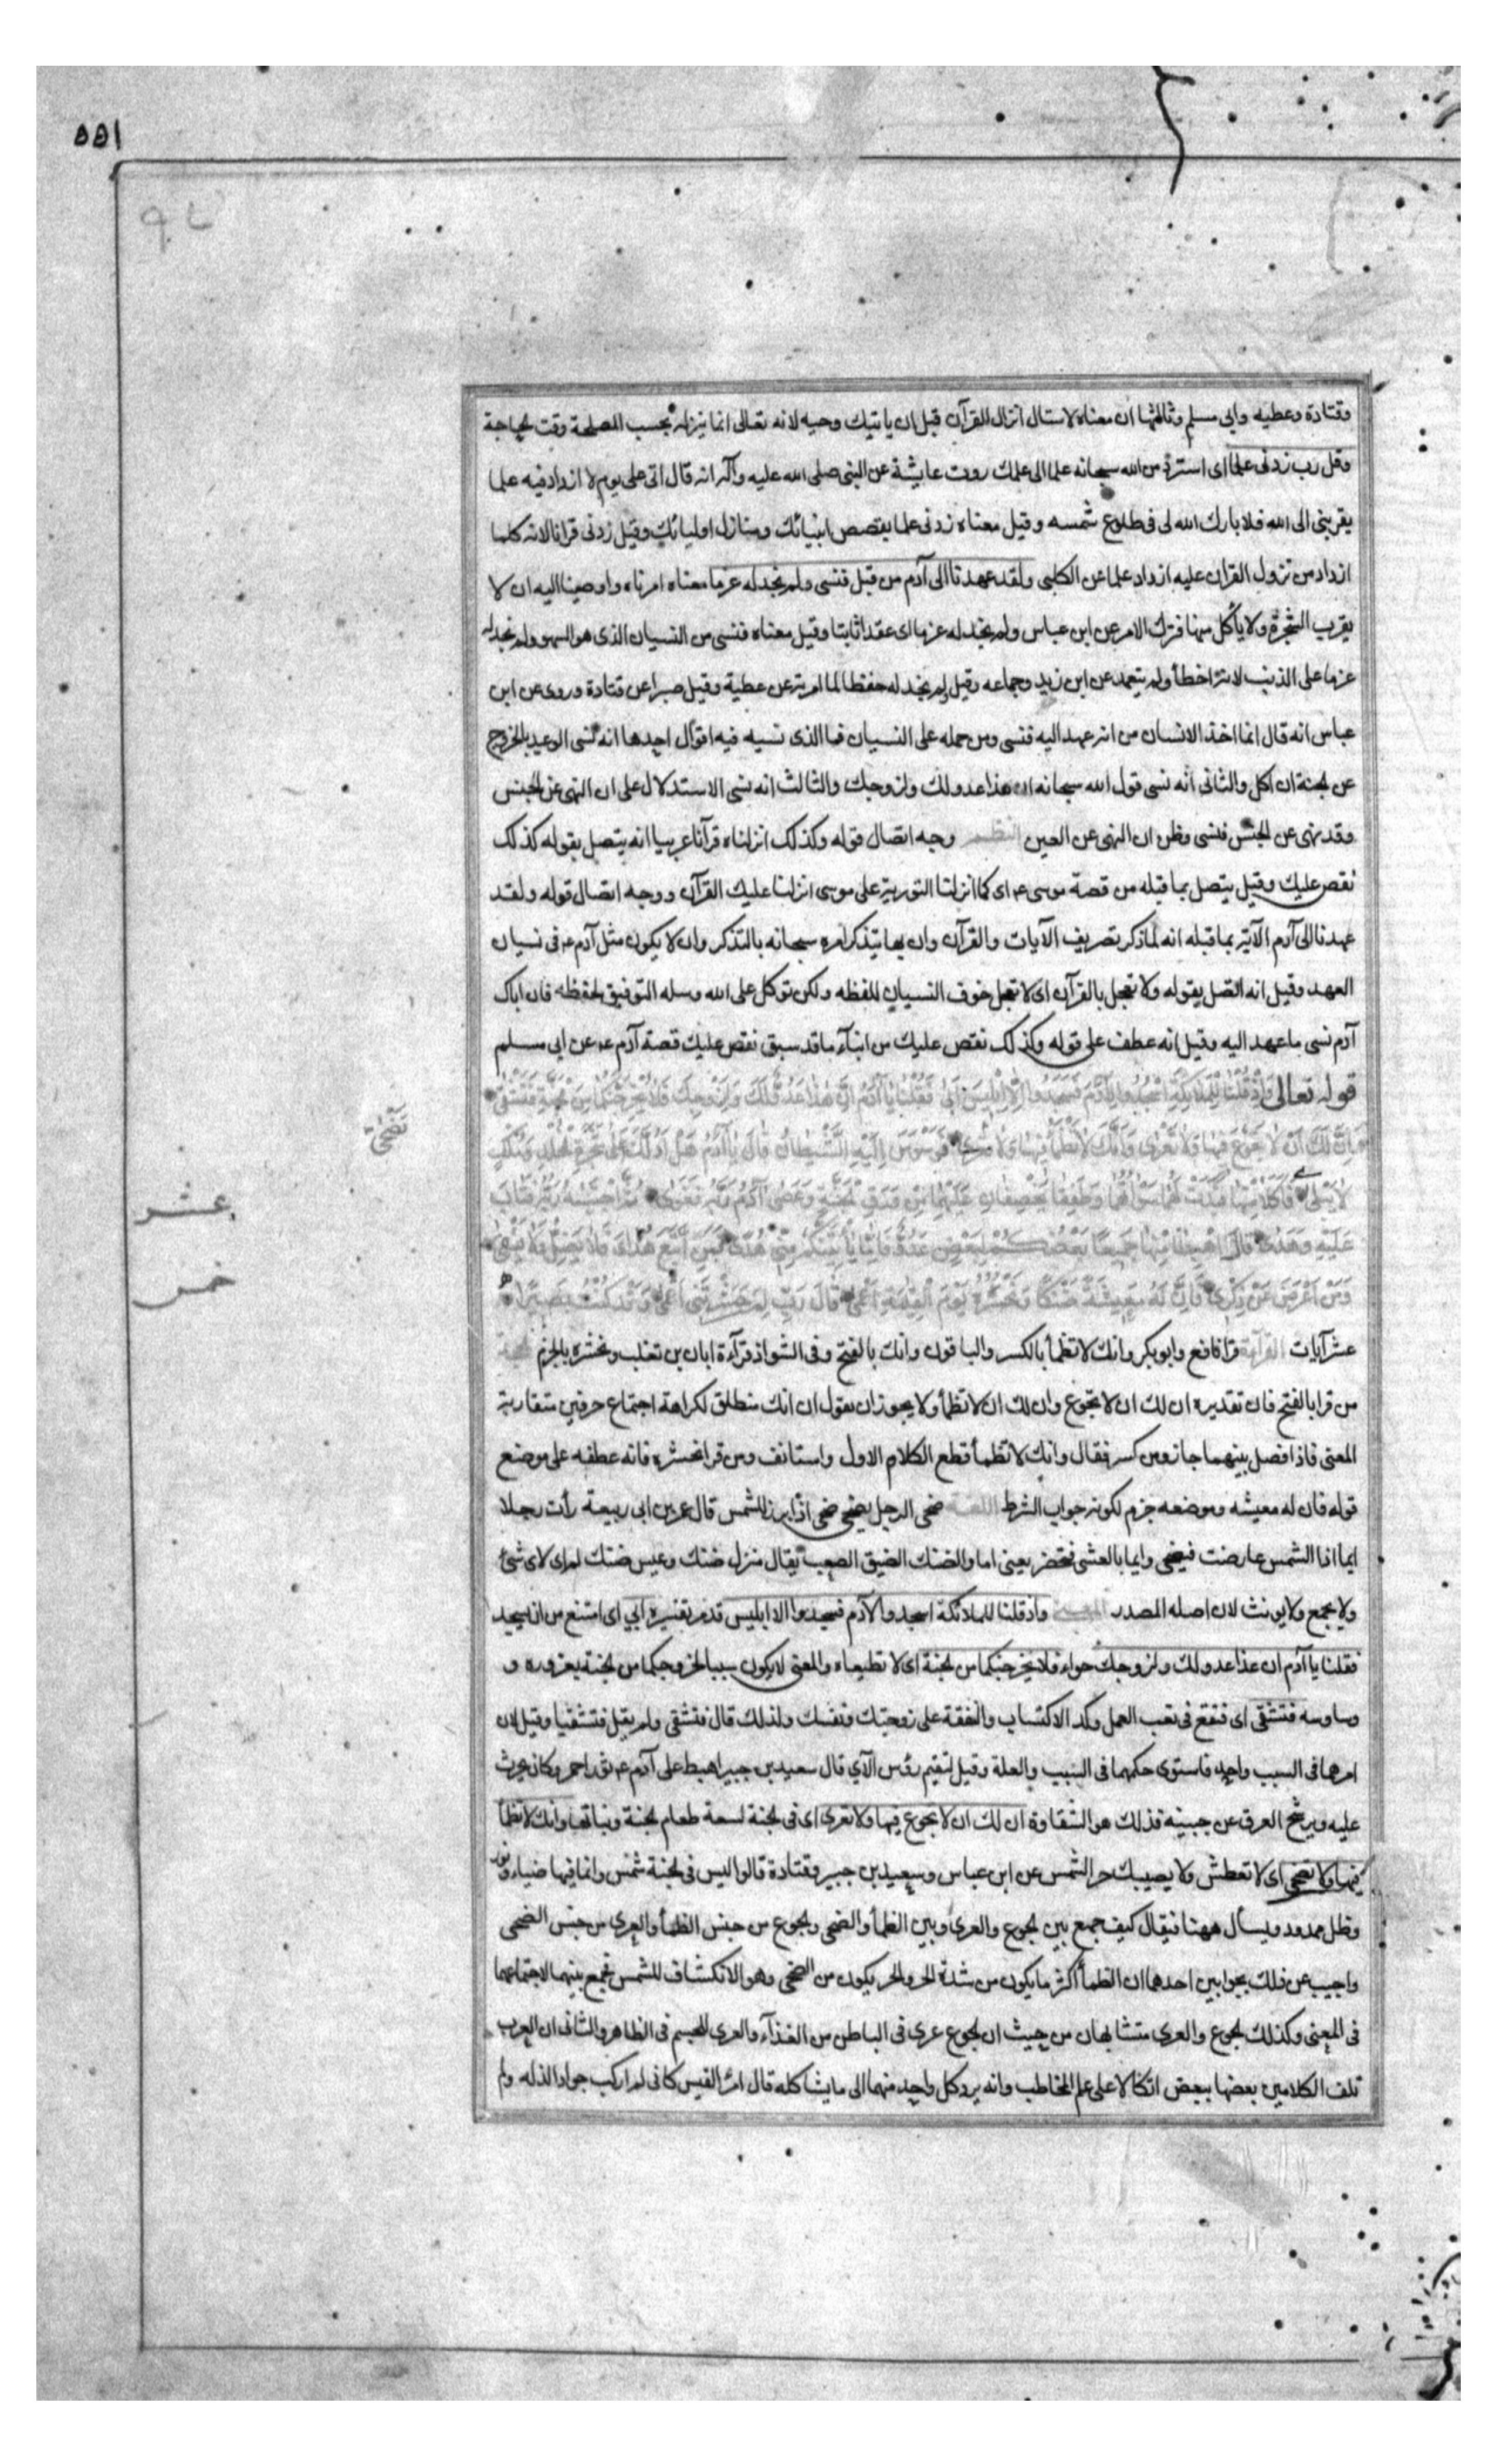 ١٥٥
وقتادة وعطيه وابي مسلم وثالثها ان معناه لا تسال انزال القرآن قبل ان ياتيك وحيه لانه تعالى انما ينزله بحسب المصلحة وقت الحاجة
وقل رب زدنى علما اى استزد من الله سبحانه علما الى علمك روت عايشة عن النبى صلى الله عليه وآله انه قال اتى على يوم لا ازداد فيه علما
يقربنى الى الله فلا بارك الله لى فى طلوع شمسه وقيل معناه زدنى علما بقصص انبيائك ومنازل اوليائك وقيل زدنى قرانا لانه كلما
ازداد من نزول القران عليه ازداد علما عن الكلبى ولقد عهدنا الى آدم من قبل فنسى ولم نجد له عزما معناه امرناه واوصينا اليه ان لا
يقرب الشجرة ولا يأكل منها فترك الامر عن ابن عباس ولم نجد له عزما اى عقدا ثابتا وقيل معناه فنسى من النسيان الذى هو السهو ولم نجد له
عزما على الذنب لانه اخطأ ولم يتعمد عن ابن زيد وجماعه وقيل ولم نجد له حفظا لما امر به عن عطية وقيل صبرا عن قتادة وروى عن ابن
عباس انه قال انما اخذ الانسان من انه عهد اليه فنسى ومن حمله على النسيان فما الذى نسيه فيه اقوال احدها انه نسى الوعيد بالخروج
عن الجنة ان اكل والثانى انه نسى قول الله سبحانه ان هذا عدو لك ولزوجك والثالث انه نسى الاستدلال على ان النهى عن الجنس
وقد نهى عن الجنس فنسى وظن ان النهى عن العين النظم وجه اتصال قوله وكذلك انزلناه قرآنا عربيا انه يتصل بقوله كذلك
نقص عليك وقيل يتصل بما قبله من قصة موسى عم اى كما انزلنا التورية على موسى انزلنا عليك القرآن ووجه اتصال قوله ولقد
عهدنا الى آدم الآية بما قبله انه لما ذكر تصريف الآيات والقرآن وان بها يتذكر امره سبحانه بالتذكر وان لا يكون مثل آدم عم فى نسيان
العهد وقيل انه اتصل بقوله ولا تعجل بالقرآن اى لا تعجل خوف النسيان للفظه ولكن توكل على الله وسله التوفيق لحفظه فان اباك
آدم نسى ما عهد اليه وقيل انه عطف على قوله وكذلك نقص عليك من انبآء ما قد سبق نقص عليك قصة آدم عم عن ابى مسلم
قوله تعالى وَاِذْ قُلْنَا لِلْمَلٰئِكَةِ اسْجُدُوا لِآدَمَ فَسَجَدُوا اِلَّا اِبْلِيسَ اَبٰى فَقُلْنَا يَا آدَمُ اِنَّ هٰذَا عَدُوٌّ لَكَ وَلِزَوْجِكَ فَلَا يُخْرِجَنَّكُمَا مِنَ الْجَنَّةِ فَتَشْقٰى
اِنَّ لَكَ اَنْ لَا تَجُوعَ فِيهَا وَلَا تَعْرٰى وَاَنَّكَ لَا تَظْمَأُ فِيهَا وَلَا تَضْحٰى فَوَسْوَسَ اِلَيْهِ الشَّيْطَانُ قَالَ يَا آدَمُ هَلْ اَدُلُّكَ عَلٰى شَجَرَةِ الْخُلْدِ وَمُلْكٍ
تَضْحٰى
لَا يَبْلٰى فَاَكَلَا مِنْهَا فَبَدَتْ لَهُمَا سَوْاٰتُهُمَا وَطَفِقَا يَخْصِفَانِ عَلَيْهِمَا مِنْ وَرَقِ الْجَنَّةِ وَعَصٰى آدَمُ رَبَّهُ فَغَوٰى ثُمَّ اجْتَبٰيهُ رَبُّهُ فَتَابَ
عشر
عَلَيْهِ وَهَدٰى قَالَ اهْبِطَا مِنْهَا جَمِيعًا بَعْضُكُمْ لِبَعْضٍ عَدُوٌّ فَاِمَّا يَأْتِيَنَّكُمْ مِنِّى هُدًى فَمَنِ اتَّبَعَ هُدَاىَ فَلَا يَضِلُّ وَلَا يَشْقٰى
خمس
وَمَنْ اَعْرَضَ عَنْ ذِكْرِى فَاِنَّ لَهُ مَعِيشَةً ضَنْكًا وَنَحْشُرُهُ يَوْمَ الْقِيٰمَةِ اَعْمٰى قَالَ رَبِّ لِمَ حَشَرْتَنِى اَعْمٰى وَقَدْ كُنْتُ بَصِيرًا
عشر آيات القرآءة قرا نافع وابو بكر وانك لا تظمأ بالكسر والباقون وانك بالفتح وفى الشواذ قرآءة ابان بن تغلب ونحشره بالجزم الحجة
من قرا بالفتح فان تقديره ان لك ان لا تجوع وان لك ان لا تظمأ ولا يجوز ان يقول ان انك منطلق لكراهة اجتماع حرفين متقاربة
المعنى فاذا فصل بينهما جاز ومن كسر فقال وانك لا تظمأ قطع الكلام الاول واستانف ومن قرا نحشره فانه عطفه على موضع
قوله فان له معيشه وموضعه جزم لكونه جواب الشرط اللغة ضحى الرجل يضحى ضحى اذا برز للشمس قال عمر بن ابى ربيعة رأت رجلا
ايما اذا الشمس عارضت فيضحى وايما بالعشى فيخصر يعنى اما والضنك الضيق الصعب يقال منزل ضنك وعيش ضنك
ولا يجمع ولا يونث لان اصله المصدر المعنى واذ قلنا للملائكة اسجدوا لآدم فسجدوا الا ابليس قدم تفسيره ابى اى امتنع من ان يسجد
فقلنا يا آدم ان هذا عدو لك ولزوجك حواء فلا يخرجنكما من الجنة اى لا تطيعاه والمعنى لا يكون سببا لخروجكما من الجنة بغروره و
وساوسه فتشقى اى فتقع فى تعب العمل وكد الاكتساب والنفقة على زوجتك ونفسك ولذلك قال فتشقى ولم يقل فتشقيا وقيل لان
امرهما فى السبب واحد فاستوى حكمهما فى السبب والعلة وقيل لتقيم رؤس الآى قال سعيد بن جبير اهبط على آدم عم ثور احمر وكان يحرث
عليه ويرشح العرق عن جبينه فذلك هو الشقاوة ان لك ان لا تجوع فيها ولا تعرى اى فى الجنة لسعة طعام الجنة وثيابها وانك لا تظمأ
فيها ولا تضحى اى لا تعطش ولا يصيبك حر الشمس عن ابن عباس وسعيد بن جبير وقتادة قالوا ليس فى الجنة شمس وانما فيها ضياء ونور
وظل ممدود ويسأل ههنا فيقال كيف جمع بين الجوع والعرى وبين الظمأ والضحى والجوع من جنس الظمأ والعرى من جنس الضحى
واجيب عن ذلك بجوابين احدهما ان الظمأ اكثر ما يكون من شدة الحر والحر يكون من الضحى وهو الانكشاف للشمس فجمع بينهما لاجتماعهما
فى المعنى وكذلك الجوع والعرى متشابهان من حيث ان الجوع عرى فى الباطن من الغذآء والعرى للجسم فى الظاهر والثانى ان العرب
تلف الكلامين بعضها ببعض اتكالا على علم المخاطب وانه يرد كل واحد منهما الى ما يشاكله قال امرؤ القيس كانى لم اركب جوادا للذه ولم